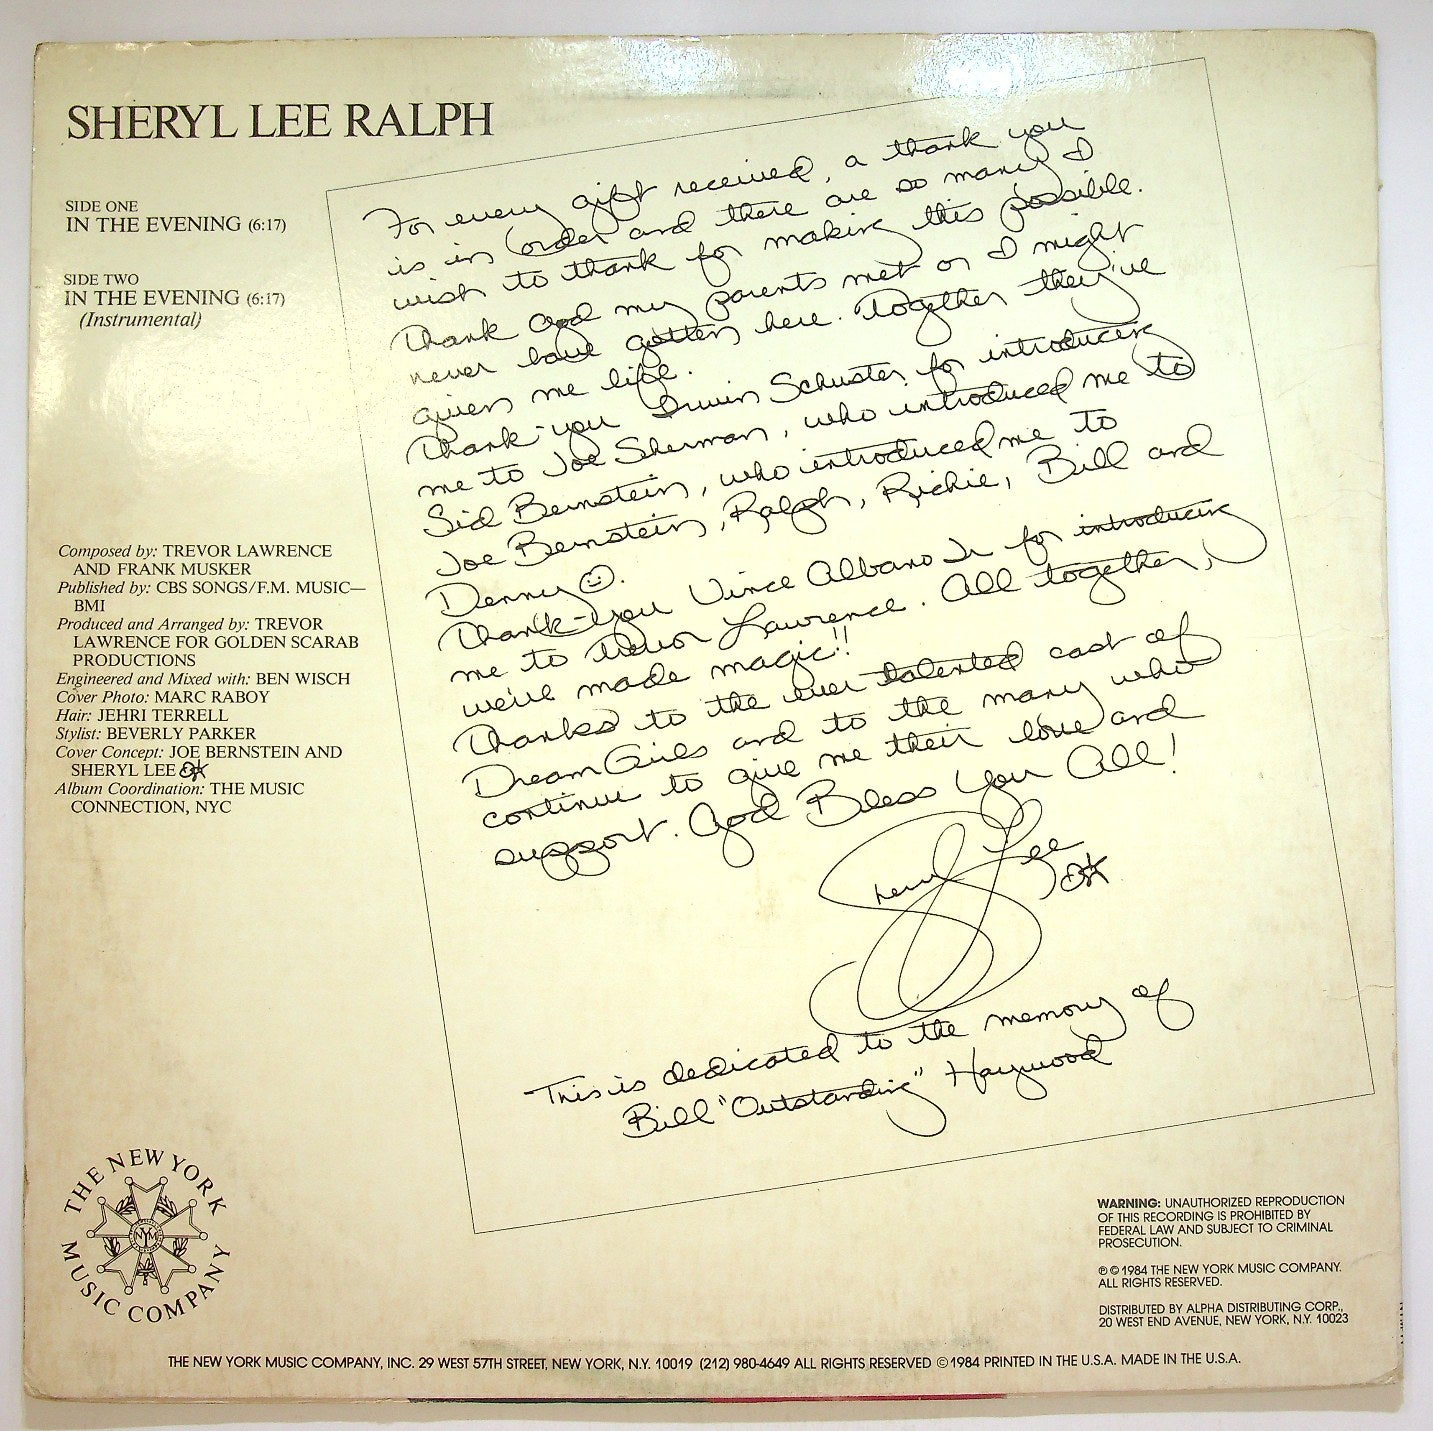 SHERYL LEE RALPH
SIDE ONE
IN THE EVENING (6:17)
SIDE TWO
IN THE EVENING (6:17)
(Instrumental)
Composed by: TREVOR LAWRENCE
AND FRANK MUSKER
Published by: CBS SONGS/F.M. MUSIC—
BMI
Produced and Arranged by: TREVOR
LAWRENCE FOR GOLDEN SCARAB
PRODUCTIONS
Engineered and Mixed with: BEN WISCH
Cover Photo: MARC RABOY
Hair: JEHRI TERRELL
Stylist: BEVERLY PARKER
Cover Concept: JOE BERNSTEIN AND
SHERYL LEE
Album Coordination: THE MUSIC
CONNECTION, NYC
For every gift received, a thank you
is in order and there are so many I
wish to thank for making this possible.
Thank God my parents met or I might
never have gotten here. Together they've
given me life.
Thank-you Irwin Schuster for introducing
me to Joe Sherman, who introduced me to
Sid Bernstein, who introduced me to
Joe Bernstein, Ralph, Richie, Bill and
Denny☺.
Thank-you Vince Albano Jr for introducing
me to Trevor Lawrence. All together,
we've made magic!!
Thanks to the ever talented cast of
DreamGirls and to the many who
continue to give me their love and
support. God Bless You All!
Sheryl Lee
This is dedicated to the memory of
Bill "Outstanding" Haywood
THE NEW YORK
MUSIC COMPANY
NYM
WARNING: UNAUTHORIZED REPRODUCTION
OF THIS RECORDING IS PROHIBITED BY
FEDERAL LAW AND SUBJECT TO CRIMINAL
PROSECUTION.
℗ © 1984 THE NEW YORK MUSIC COMPANY.
ALL RIGHTS RESERVED.
DISTRIBUTED BY ALPHA DISTRIBUTING CORP.,
20 WEST END AVENUE, NEW YORK, N.Y. 10023
THE NEW YORK MUSIC COMPANY, INC. 29 WEST 57TH STREET, NEW YORK, N.Y. 10019 (212) 980-4649 ALL RIGHTS RESERVED ©1984 PRINTED IN THE U.S.A. MADE IN THE U.S.A.